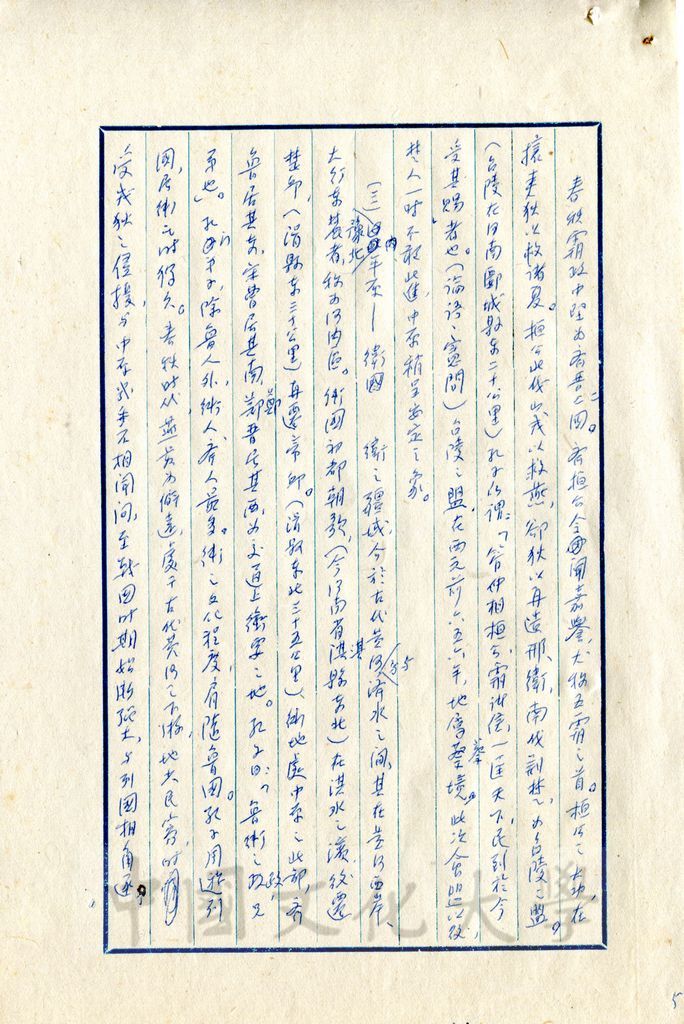 春秋霸政中堅為齊晉二國。齊桓公令聞嘉譽,尤為五霸之首。桓公之大功在
攘夷狄以救諸夏。桓公北伐山戎以救燕,卻狄以再造邢、衛,南伐荊楚,為召陵之盟。
(召陵在河南郾城縣東二十公里)孔子所謂:「管仲相桓公霸諸侯,一匡天下,民到於今
受其賜者也。(論語、憲問)召陵之盟,在西元前六五六年,地當蔡境。此次會盟以後,
楚人一時不敢北進,中原稍呈安定之象。
(三)豫北平原——衛國 衛之疆域介於古代黃河濟水之間,其在黃河西岸、
太行東麓者,稱為河內區。衛國初都朝歌(今河南省淇縣東北)在淇水之濱,後遷
楚邱,(滑縣東三十公里)再遷帝邱。(滑縣東北三十五公里)、衛地處中原之北部,齊
魯居其東,宋曹居其南,鄭晉居其西,為交通上衝要之地。孔子曰:「魯衛之政,兄
弟也。」孔門弟子,除魯人外,衛人、齊人最多。衛之文化程度,肩隨魯國。孔子周遊列
國,居衛之時獨久。春秋時代,燕最為僻遠,處于古代黃河之下游,地大民寡,時
受戎狄之侵擾,與中原幾乎不相聞問,至戰國時期始漸強大,與列國相角逐。
中國文化大學
5